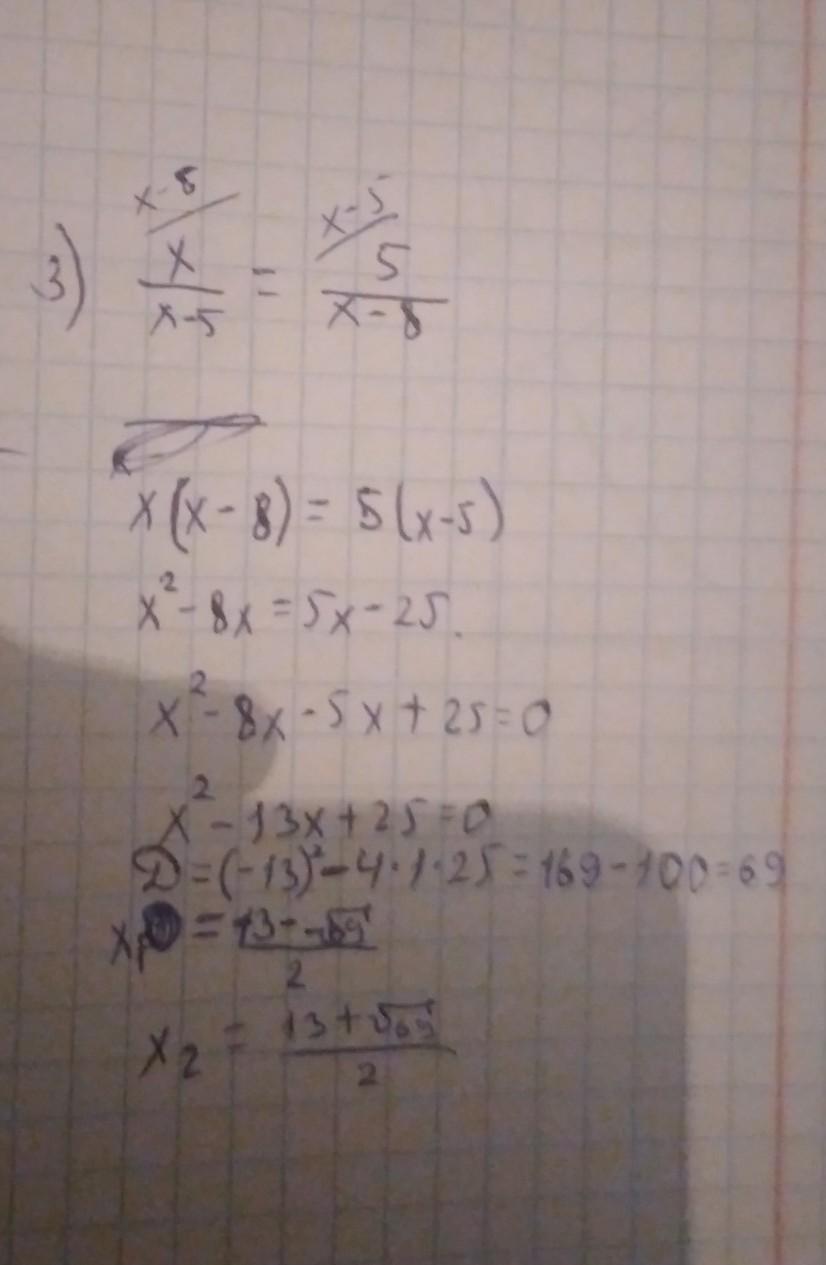 x-8 x-5
3) x/x-5 = 5/x-8
x(x-8) = 5(x-5)
x²-8x=5x-25.
x²-8x-5x+25=0
x²-13x+25=0
D=(-13)²-4·1·25=169-100=69
x₁ = 13-√69/2
x₂ = 13+√69/2